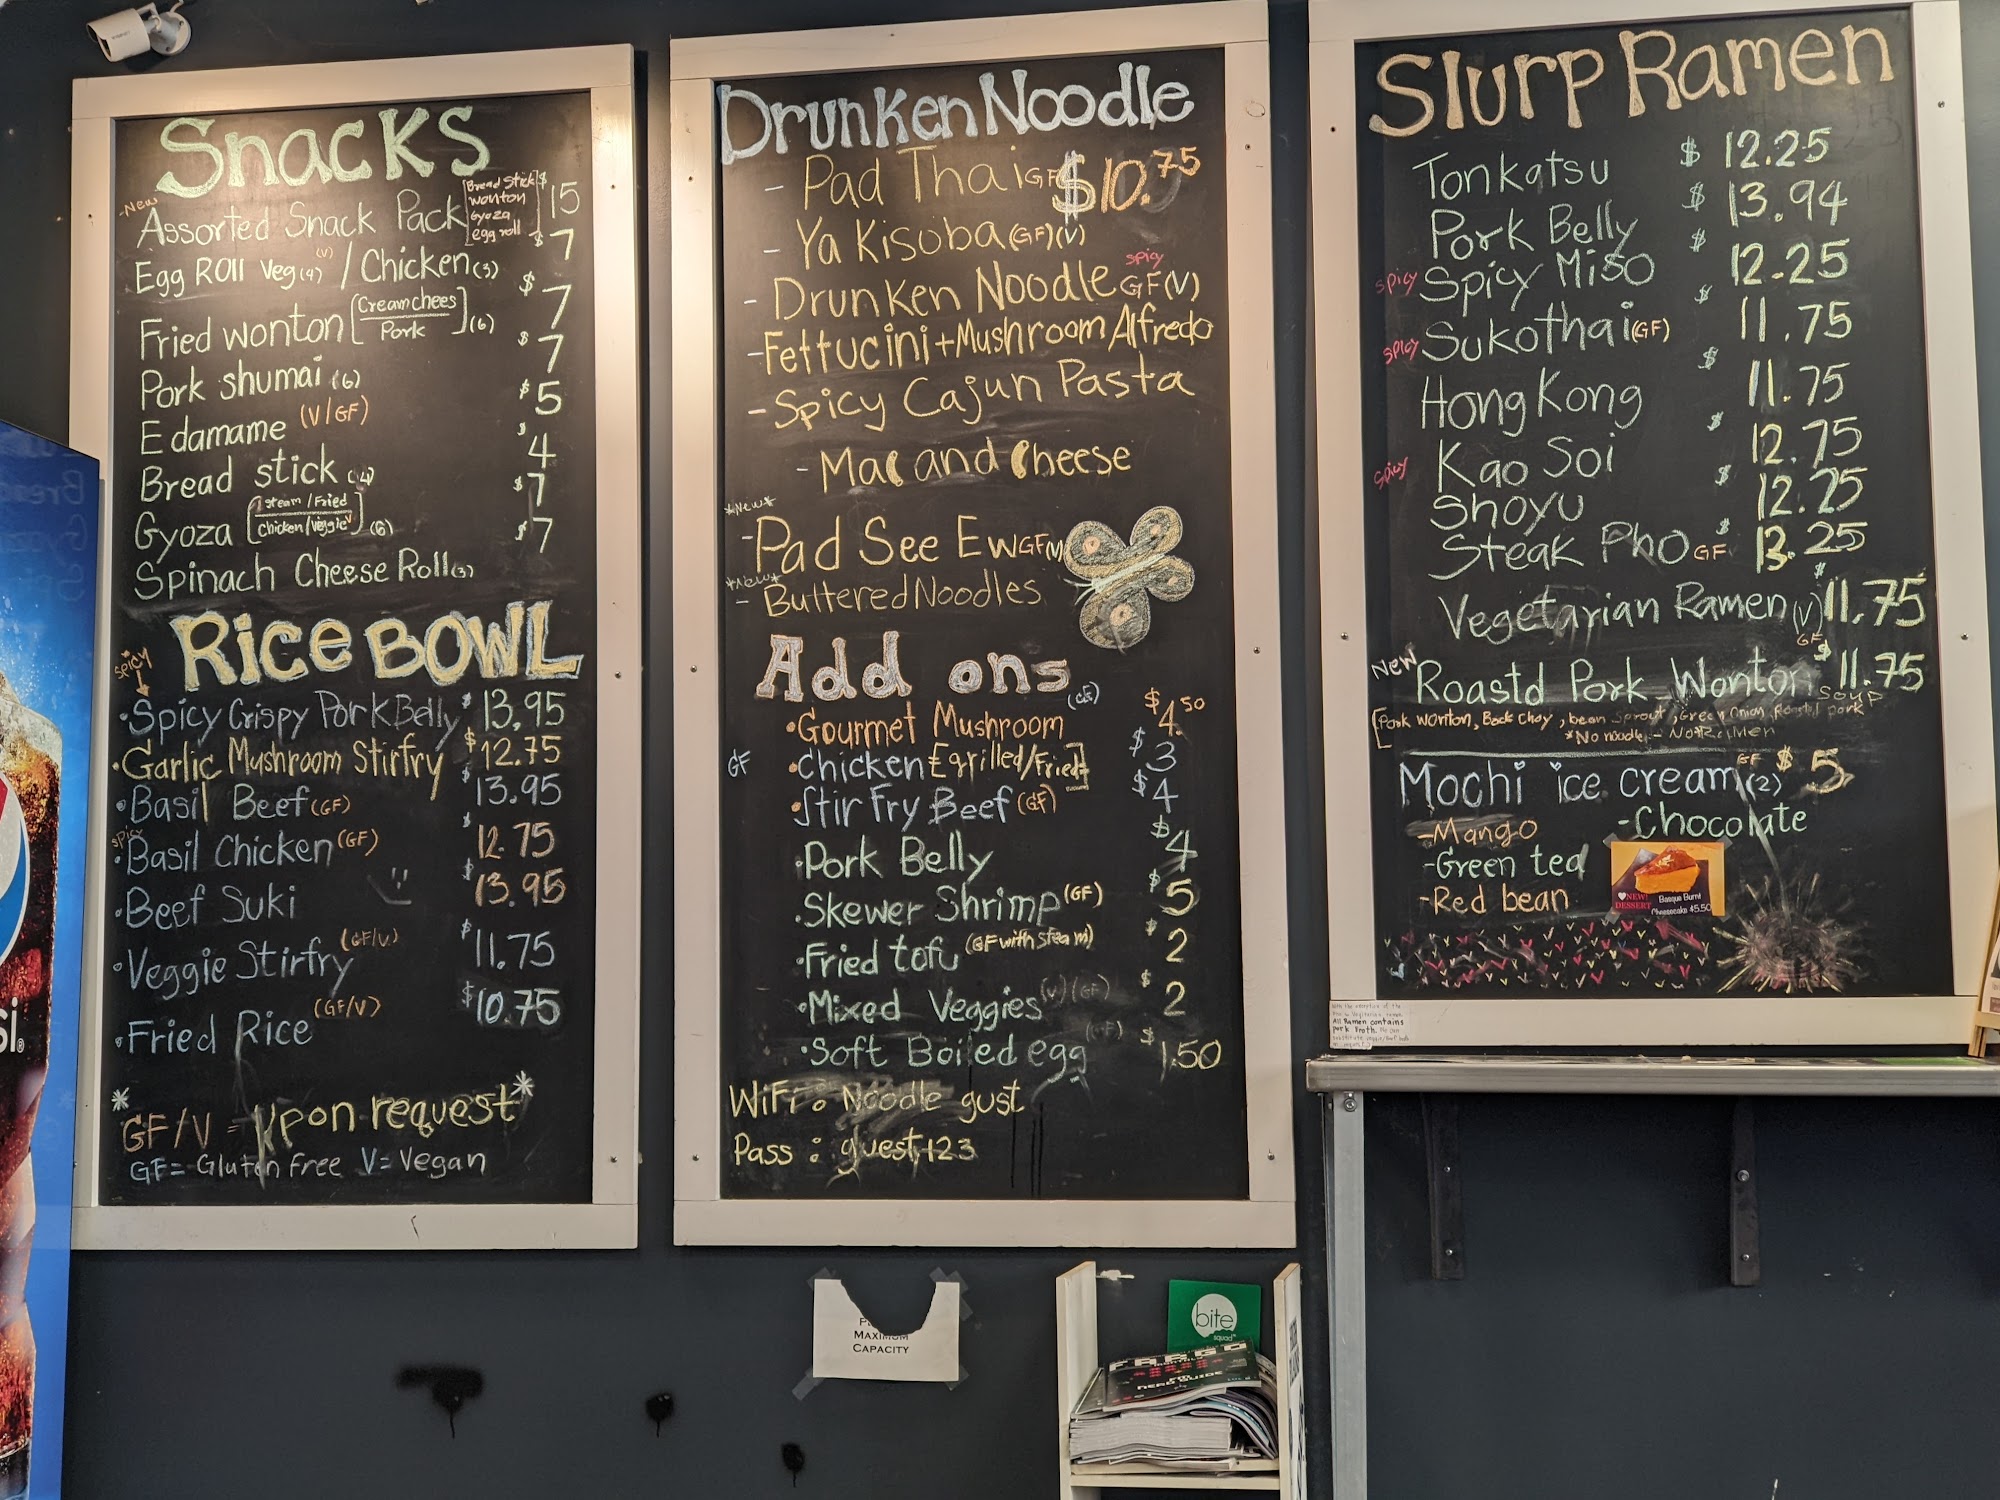 Snacks
-New
Assorted Snack Pack [Bread Stick wonton Gyoza egg roll] $15
Egg Roll Veg(4) (V) / Chicken(3) $7
Fried wonton [Cream chees / Pork](6) $7
Pork shumai (6) $7
Edamame (V/GF) $5
Bread stick (4) $4
Gyoza [steam/Fried Chicken/Veggie V](6) $7
Spinach Cheese Roll(3) $7
Rice BOWL
spicy
•Spicy Crispy Pork Belly $13.95
•Garlic Mushroom Stirfry $12.75
•Basil Beef (GF) $13.95
spicy
•Basil Chicken (GF) $12.75
•Beef Suki $13.95
•Veggie Stirfry (GF/V) $11.75
•Fried Rice (GF/V) $10.75
* GF/V = Upon request *
GF = Gluten free V = Vegan
Drunken Noodle
- Pad Thai GF $10.75
- Ya Kisoba (GF)(V)
spicy
- Drunken Noodle GF(V)
- Fettucini + Mushroom Alfredo
- Spicy Cajun Pasta
- Mac and Cheese
*New*
- Pad See Ew GF(V)
*New*
- Buttered Noodles
Add ons
•Gourmet Mushroom (GF) $4.50
GF •Chicken [grilled/Fried] $3
•Stir Fry Beef (GF) $4
•Pork Belly $4
•Skewer Shrimp (GF) $5
•Fried tofu (GF with steam) $2
•Mixed Veggies (V)(GF) $2
•Soft Boiled egg (GF) $1.50
WiFi: Noodle gust
Pass: guest123
Slurp Ramen
Tonkatsu $12.25
Pork Belly $13.94
spicy Spicy Miso $12.25
spicy Sukothai (GF) $11.75
Hong Kong $11.75
spicy Kao Soi $12.75
Shoyu $12.25
Steak Pho GF $13.25
Vegetarian Ramen (V) GF $11.75
New Roastd Pork Wonton Soup $11.75
[Pork wonton, Bock Choy, bean Sprout, Green Onion, Roastd pork
*No noodle - Not Ramen
Mochi ice cream GF (2) $5
-Mango -Chocolate
-Green tea
-Red bean
NEW! DESSERT
Basque Burnt
Cheesecake $5.50
All Ramen contains
pork Broth.
MAXIMUM
CAPACITY
bite
squad
FARGO
MONTHLY
NERD GUIDE
si